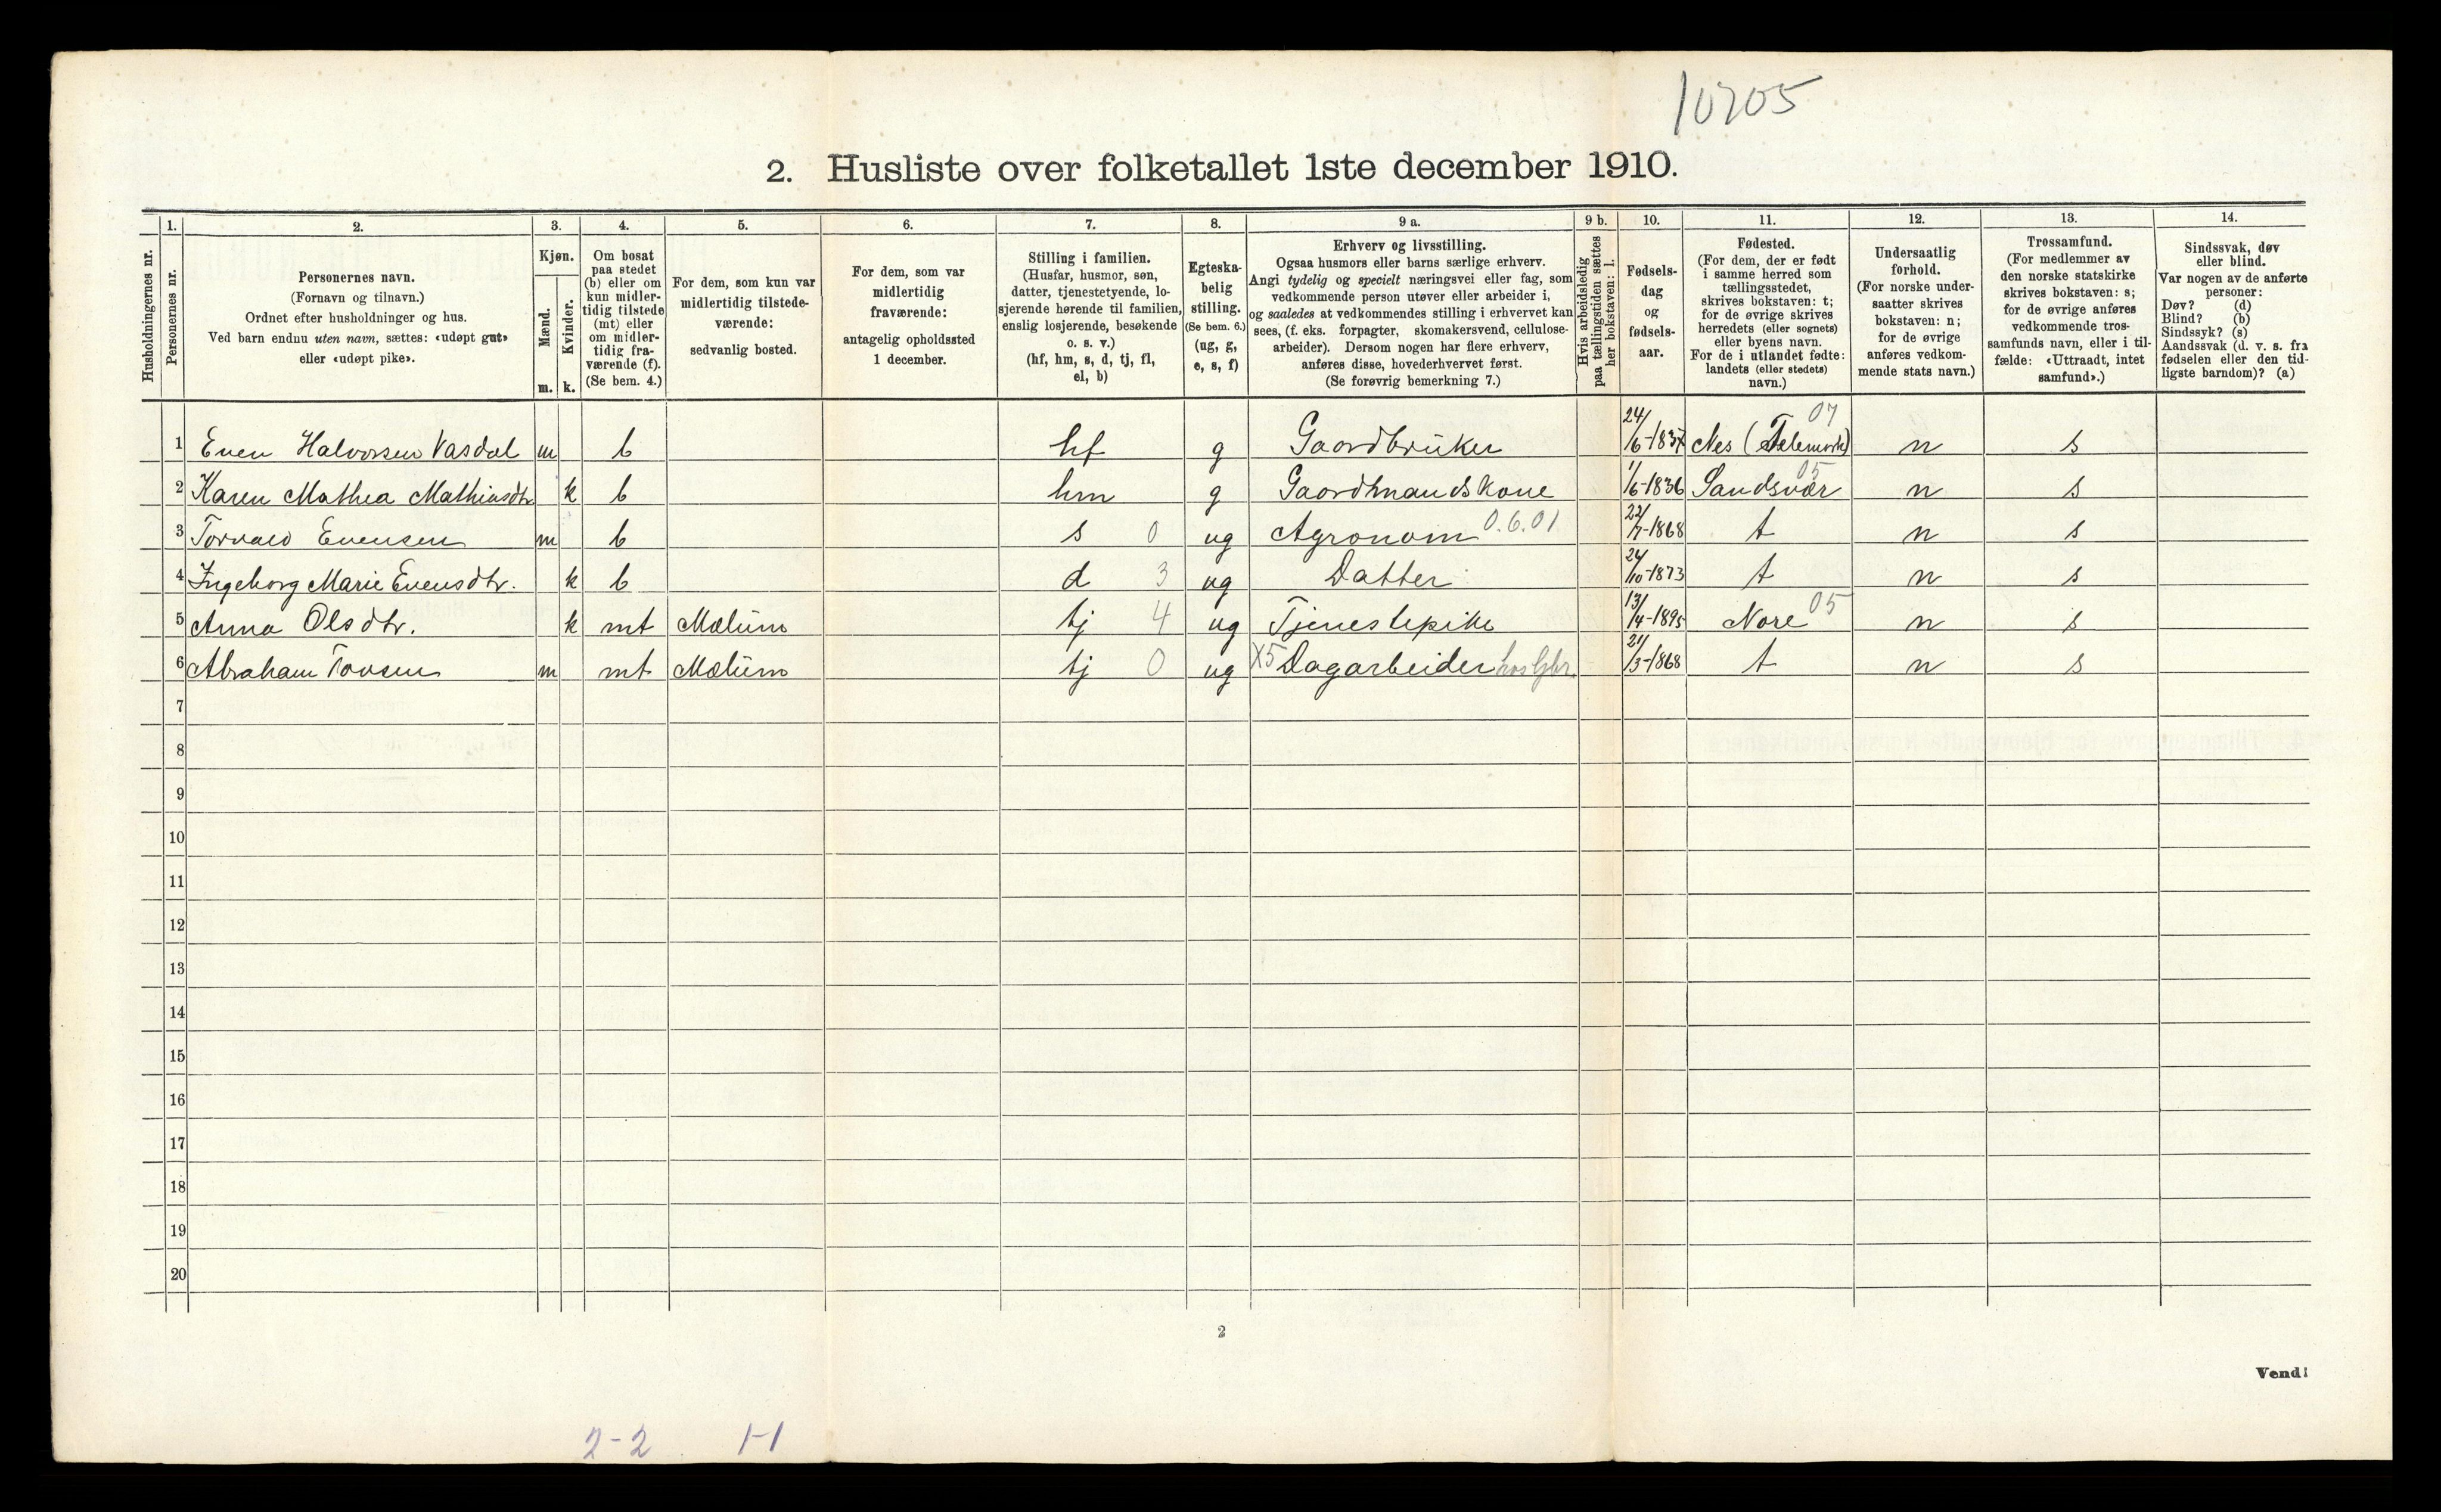 10205
2. Husliste over folketallet 1ste december 1910.
1. 2. 3. 4. 5. 6. 7. 8. 9 a. 9 b. 10. 11. 12. 13. 14.
Husholdningernes nr.
Personernes nr.
Personernes navn.
(Fornavn og tilnavn.)
Ordnet efter husholdninger og hus.
Ved barn endnu uten navn, sættes: «udøpt gut»
eller «udøpt pike».
Kjøn.
Mænd.
Kvinder.
m. k.
Om bosat
paa stedet
(b) eller om
kun midler-
tidig tilstede
(mt) eller
om midler-
tidig fra-
værende (f).
(Se bem. 4.)
For dem, som kun var
midlertidig tilstede-
værende:
sedvanlig bosted.
For dem, som var
midlertidig
fraværende:
antagelig opholdssted
1 december.
Stilling i familien.
(Husfar, husmor, søn,
datter, tjenestetyende, lo-
sjerende hørende til familien,
enslig losjerende, besøkende
o. s. v.)
(hf, hm, s, d, tj, fl,
el, b)
Egteska-
belig
stilling.
(Se bem. 6.)
(ug, g,
e, s, f)
Erhverv og livsstilling.
Ogsaa husmors eller barns særlige erhverv.
Angi tydelig og specielt næringsvei eller fag, som
vedkommende person utøver eller arbeider i,
og saaledes at vedkommendes stilling i erhvervet kan
sees, (f. eks. forpagter, skomakersvend, cellulose-
arbeider). Dersom nogen har flere erhverv,
anføres disse, hovederhvervet først.
(Se forøvrig bemerkning 7.)
Hvis arbeidsledig
paa tællingstiden sættes
her bokstaven: l.
Fødsels-
dag
og
fødsels-
aar.
Fødested.
(For dem, der er født
i samme herred som
tællingsstedet,
skrives bokstaven: t;
for de øvrige skrives
herredets (eller sognets)
eller byens navn.
For de i utlandet fødte:
landets (eller stedets)
navn.)
Undersaatlig
forhold.
(For norske under-
saatter skrives
bokstaven: n;
for de øvrige
anføres vedkom-
mende stats navn.)
Trossamfund.
(For medlemmer av
den norske statskirke
skrives bokstaven: s;
for de øvrige anføres
vedkommende tros-
samfunds navn, eller i til-
fælde: «Uttraadt, intet
samfund».)
Sindssvak, døv
eller blind.
Var nogen av de anførte
personer:
Døv? (d)
Blind? (b)
Sindssyk? (s)
Aandssvak (d. v. s. fra
fødselen eller den tid-
ligste barndom)? (a)
1 Even Halvorsen Vasdal m b hf g Gaardbruker 24/6-1837 Nes (Telemark) 07 n s
2 Karen Mathea Mathiasdtr k b hm g Gaardmandskone 1/6-1836 Sandsvær 05 n s
3 Torvald Evensen m b s 0 ug Agronom 0.6.01 22/7-1868 t n s
4 Ingeborg Marie Evensdtr. k b d 3 ug Datter 24/10-1873 t n s
5 Anna Olsdtr. k mt Mælum tj 4 ug Tjenestepike 13/4-1895 Nore 05 n s
6 Abraham Tovsen m mt Mælum tj 0 ug X5 Dagarbeider hos Gbr. 21/3-1868 t n s
7
8
9
10
11
12
13
14
15
16
17
18
19
20
2
Vend!
2-2 1-1